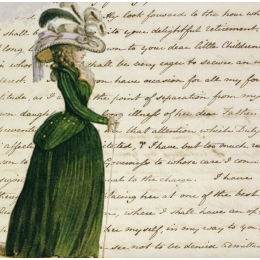 ly look forward to the hour whe
shall be your delightful returement
own to your dear little Children
shall be very eager to secure an
you have occasion for all my for
titude, as I the point of separation from my
own daugh long illness of her dear Father
fluently that attention which Duty
affecti & I have but too much rea
Governess to whose care I com
equal to the charge. I have
Placing her at one of the best
on, where I shall have an of
her myself, in my way to you
see not to be denied Admitta